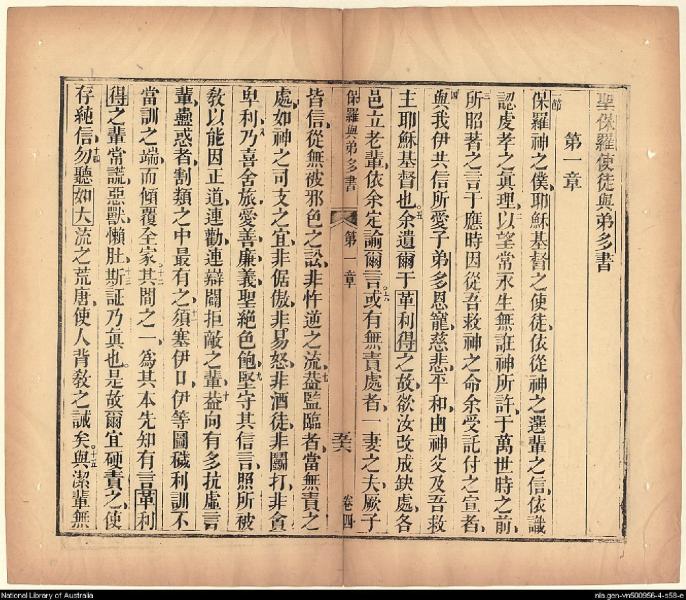 聖保羅使徒與弟多書
第一章
一節保羅神之僕、耶穌基督之使徒、依從神之選輩之信、依識
認虔孝之真理、以望常永生、無誑神所許于萬世時之前、
三所昭著之言于應時、因從吾救神之命、余受託付之宣者、
四與我伊共信所愛子弟多恩寵慈悲平和由神父及吾救
主耶穌基督也。五余遺爾于革利得之故、欲汝改成缺處、各
邑立老輩、依余定諭爾言。六或有無責處者、一妻之夫、厥子
保羅與弟多書 第一章 卷四
皆信從、無被邪色之訟、非忤逆之流。七蓋監臨者、當無責之
處、如神之司支之、宜非倨傲、非易怒、非酒徒、非鬬打、非貪
卑利、八乃喜舍旅、愛善、廉、義、聖、絕色飽、九堅守其信言、照所被
教、以能因正道連勸、連辯闢拒敵之輩。十蓋向有多抗虛言
輩、蠱惑者、割類之中最有之、須塞伊口、伊等圖穢利、訓不
當訓之端、而傾覆全家。十二其間之一、為其本先知、有言革利
得之輩常謊惡獸懶肚。十三斯証乃真也。是故爾宜硬責之、使
存純信、十四勿聽如大流之荒唐、使人背教之誡矣。十五與潔輩無
National Library of Australia
nla.gen-vn500956-4-s58-e